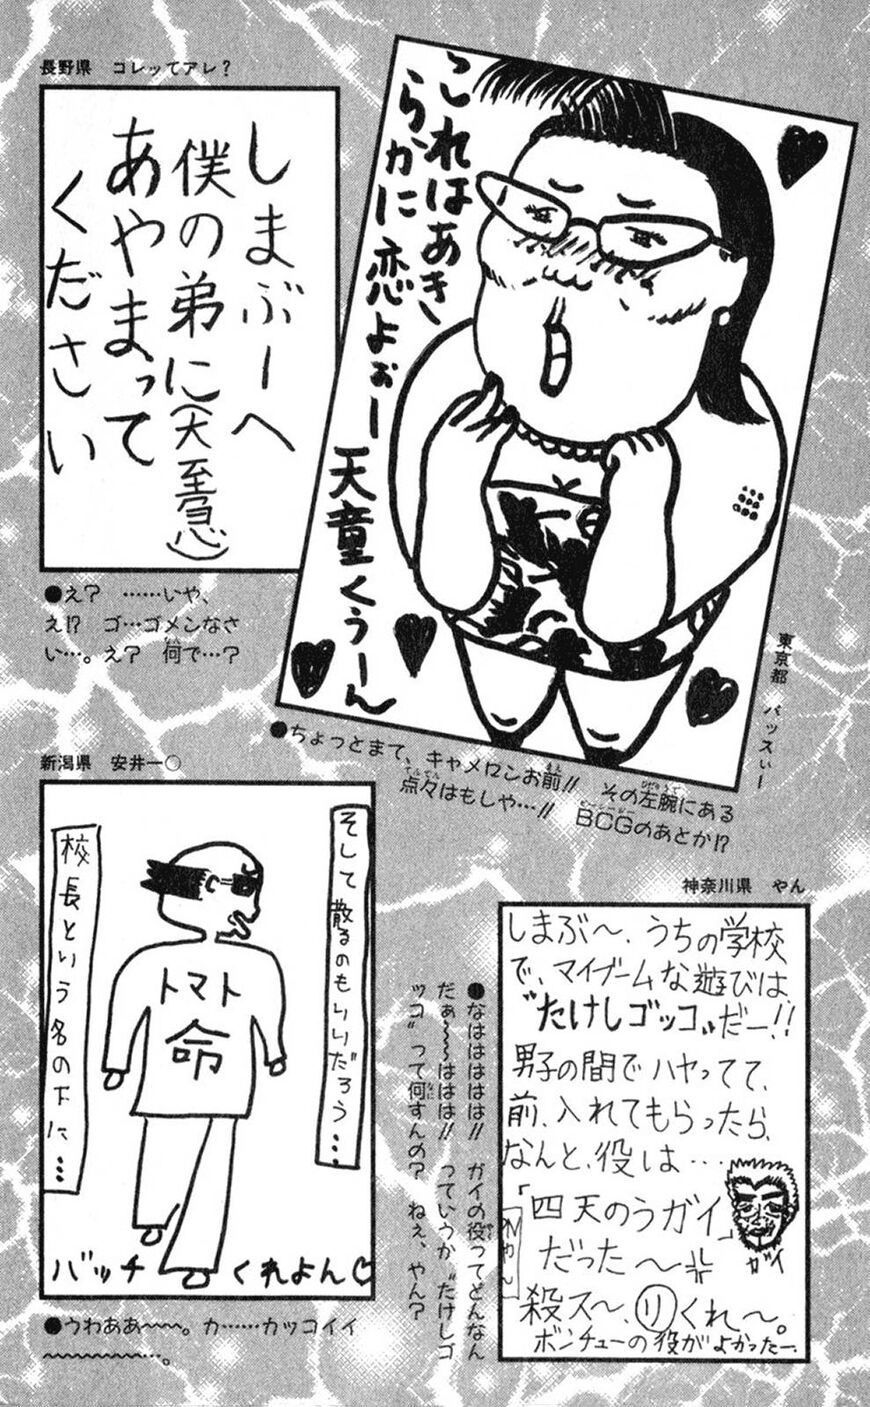 長野県　コレってアレ？
しまぶーへ
僕の弟に(大至急)
あやまって
ください
●え？　……いや、
え!?　ゴ…ゴメンなさ
い…。え？　何で…？
これはあき
らかに恋よぉー天童くぅーん
東京都　バッスぃー
●ちょっとまて、キャメロンお前!!　その左腕にある
点々はもしや…!!　BCGのあとか!?
新潟県　安井一〇
そして散るのもいいだろう…
校長という名の下に…
トマト
命
バッチくれよん♡
●うわああ〜〜〜。カ……カッコイイ
〜〜〜〜〜〜〜…。
神奈川県　やん
しまぶ〜、うちの学校
で、マイブームな遊びは
〝たけしゴッコ〟だー!!
男子の間でハヤってて、
前、入れてもらったら、
なんと、役は…
「四天のうガイ」
だった〜
ガイ
殺ス〜、リくれ〜。
ボンチューの役がよかったー、
●なはははははは!!　ガイの役ってどんなん
だぁ〜〜ははは!!　っていうか〝たけしゴ
ッコ〟って何すんの？　ねぇ、やん？